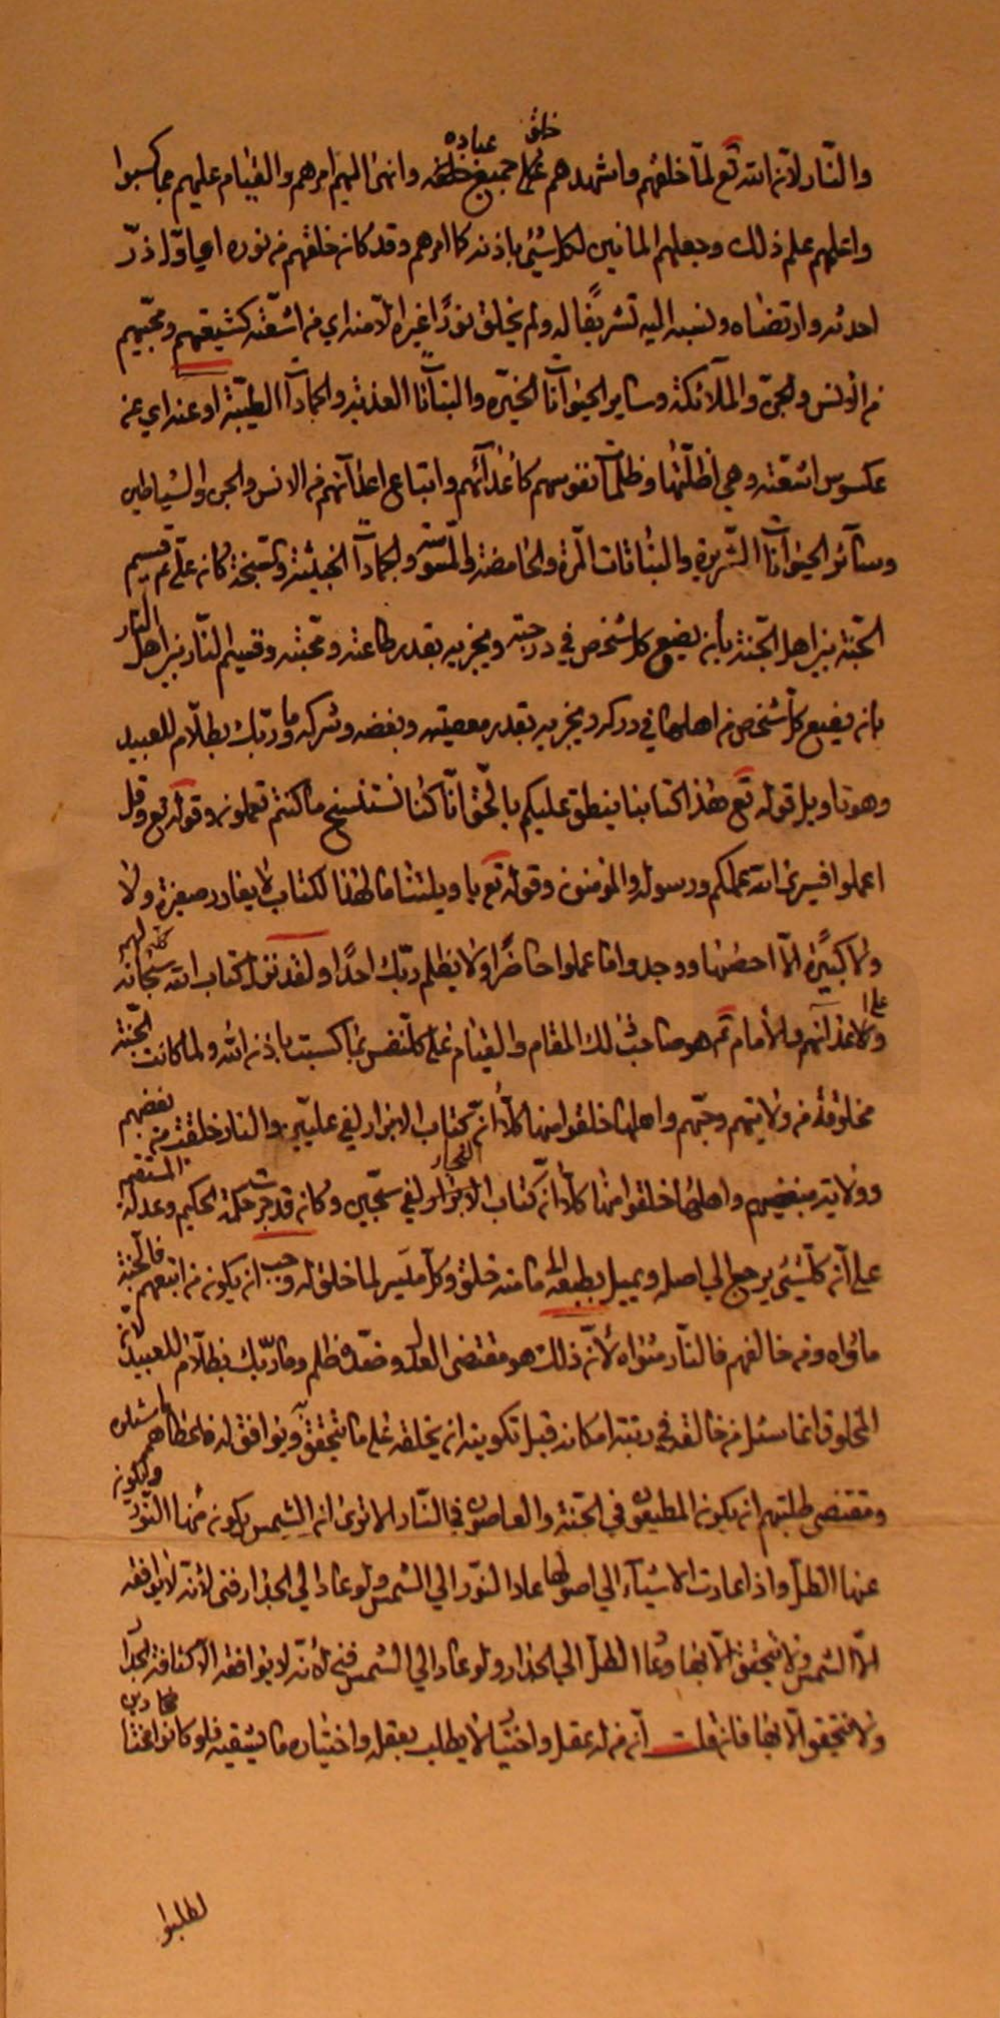 والنّار لانه الله تع لمّا خلقهم واشهدهم على خلق جميع عباده وانهى اليهم امرهم والقيام عليهم بما كسبوا
واعلمهم علم ذلك وجعلهم المانين لكل شيئ باذنه كما امرهم وقد كان خلقهم من نوره اعيا اوّل ذرّ
احدثه وارتضاه ونسبه اليه تشريفًا له ولم يخلق نورًا غيره الّا منه اي من اشعّته كشيعتهم ومحبّيهم
من الانس والجن والملآئكة وساير الحيوانات الخيّرة والنباتات العذبة والجمادات الطيّبة او عنه اي من
عكوس اشعّته وهي اظلّتها وظلمات نفوسهم كأعدآئهم واتباع اعدآئهم من الانس والجن والشياطين
وسآئر الحيوانات الشّريرة والنباتات المرّة والحامضة والجمادات الخبيثة والسّبخة كان عليّ ع قسيم
الجنّة بين اهل الجنّة بأن يضع كل شخص في درجته ويجزيه بقدر طاعته ومحبّته وقسيم النّار بين اهل النار
بان يضع كلّ شخص من اهلها في دركه ويجزيه بقدر معصيته وبغضه وتركه وما ربّك بظلّام للعبيد
وهو تاويل قوله تع هذا كتابنا ينطق عليكم بالحقّ انّا كنّا نستنسخ ما كنتم تعملون وقوله تع وقل
اعملوا فسيرى الله عملكم ورسوله والمؤمنون وقوله تع يا ويلتنا ما لهذا الكتاب لا يغادر صغيرة ولا
ولا كبيرة الّا احصيها ووجدوا ما عملوا حاضرًا ولا يظلم ربّك احدًا ولقد نزل كتاب الله سبحانه لهم
ولاعدآئهم والأمام ع هو صاحب ذلك المقام والقيام على كلّ نفس بما كسبت باذن الله ولما كانت الجنّة
مخلوقة من ولايتهم وحبّهم واهلها خلقوا منها كلّا انّ كتاب الابرار لفي علّيين والنار خلقت من بغضهم
وولاية مبغضيهم واهلها خلقوا منها كلّا انّ كتاب الفجار لفي سجّين وكانه قد جرت حكمة الحكيم وعدله المستقيم
على انّ كلّ شيئ يرجع الى اصله ويميل بطبعه الى ما منه خلق وكلّ ميسّر لما خلق له وجب ان يكون من اتبعهم فالجنّة
مأواه ومن خالفهم فالنّار مثواه لأنّ ذلك هو مقتضى العدل وضدّه ظلم وما ربّك بظلّام للعبيد لانّ
المخلوق انما سئل من خالقه في رتبة امكانه قبل تكوينه ان يخلقه على ما يتحقق ويوافق له فاعطاهم ما سئلوه
ومقتضى طلبتهم ان يكون المطيعون في الجنّة والعاصون في النّار الا ترى ان الشمس يكون منها النّور ويكون
عنها الظلّ واذا عادت الاشيآء الى اصولها عاد النّور الى الشمس ولو عاد الى الجدار فنى لأنه لا يوافقه
الّا الشمس ولا يتحقق الّا بها وعاد الظلّ الى الجدار ولو عاد الى الشمس فنى لأنّه لا يوافقه الّا كثافة الجدار
ولا يتحقق الّا بها فان قلت انّ من له عقل واختيار لا يطلب بعقله واختياره ما يشقيه فلو كانوا مختارين
لطلبوا